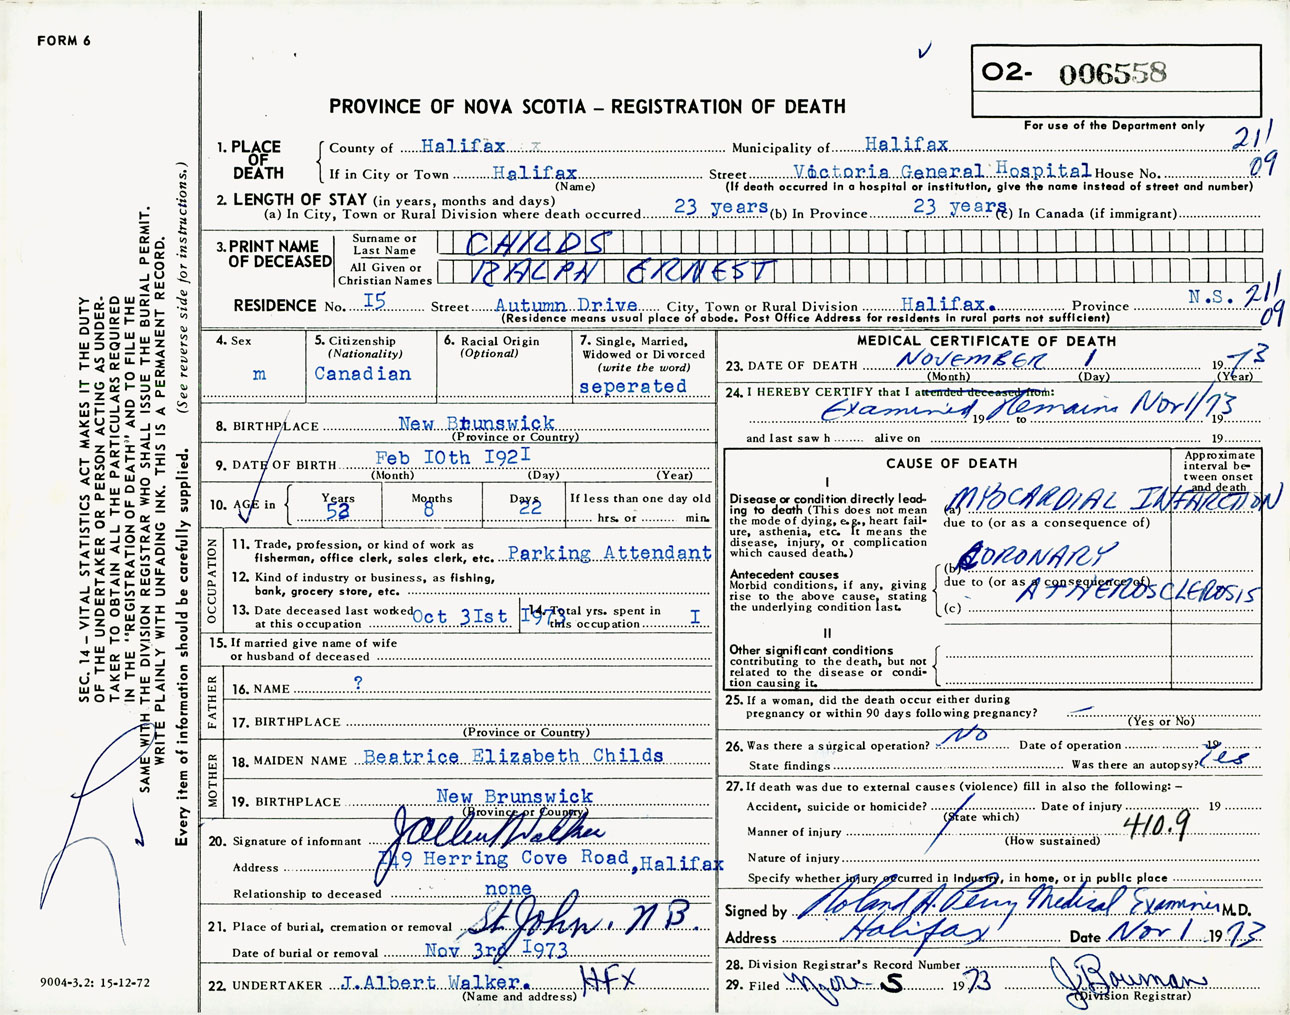 FORM 6
O2- 006558
PROVINCE OF NOVA SCOTIA – REGISTRATION OF DEATH
For use of the Department only
1. PLACE OF DEATH
County of Halifax x Municipality of Halifax 211
If in City or Town Halifax Street Victoria General Hospital House No. 09
(Name) (If death occurred in a hospital or institution, give the name instead of street and number)
2. LENGTH OF STAY (in years, months and days)
(a) In City, Town or Rural Division where death occurred 23 years (b) In Province 23 years (c) In Canada (if immigrant)
3. PRINT NAME OF DECEASED
Surname or Last Name CHILDS
All Given or Christian Names RALPH ERNEST
RESIDENCE No. I5 Street Autumn Drive City, Town or Rural Division Halifax. Province N.S. 211
09
(Residence means usual place of abode. Post Office Address for residents in rural parts not sufficient)
4. Sex
m
5. Citizenship
(Nationality)
Canadian
6. Racial Origin
(Optional)
7. Single, Married,
Widowed or Divorced
(write the word)
seperated
8. BIRTHPLACE New Brunswick
(Province or Country)
9. DATE OF BIRTH Feb IOth I92I
(Month) (Day) (Year)
10. AGE in
Years 52
Months 8
Days 22
If less than one day old
hrs. or min.
OCCUPATION
11. Trade, profession, or kind of work as
fisherman, office clerk, sales clerk, etc. Parking Attendant
12. Kind of industry or business, as fishing,
bank, grocery store, etc.
13. Date deceased last worked
at this occupation Oct 3Ist I973
14. Total yrs. spent in
this occupation I
15. If married give name of wife
or husband of deceased
FATHER
16. NAME ?
17. BIRTHPLACE
(Province or Country)
MOTHER
18. MAIDEN NAME Beatrice Elizabeth Childs
19. BIRTHPLACE New Brunswick
(Province or Country)
20. Signature of informant J Albert Walker
Address 149 Herring Cove Road, Halifax
Relationship to deceased none
21. Place of burial, cremation or removal St. John, N B.
Date of burial or removal Nov 3rd I973
22. UNDERTAKER J.Albert Walker. HFX
(Name and address)
MEDICAL CERTIFICATE OF DEATH
23. DATE OF DEATH NOVEMBER 1 1973
(Month) (Day) (Year)
24. I HEREBY CERTIFY that I attended deceased from:
Examined 19 Remains to Nov 1/73 19
and last saw h alive on 19
CAUSE OF DEATH
Approximate
interval be-
tween onset
and death
I
Disease or condition directly lead-
ing to death (This does not mean
the mode of dying, e.g., heart fail-
ure, asthenia, etc. It means the
disease, injury, or complication
which caused death.)
(a) MYOCARDIAL INFARCTION
due to (or as a consequence of)
Antecedent causes
Morbid conditions, if any, giving
rise to the above cause, stating
the underlying condition last.
(b) CORONARY
due to (or as a consequence of)
ATHEROSCLEROSIS
(c)
II
Other significant conditions
contributing to the death, but not
related to the disease or condi-
tion causing it.
25. If a woman, did the death occur either during
pregnancy or within 90 days following pregnancy? –
(Yes or No)
26. Was there a surgical operation? No Date of operation 19
State findings Was there an autopsy? Yes
27. If death was due to external causes (violence) fill in also the following: –
Accident, suicide or homicide? Date of injury 19
(State which)
Manner of injury 410.9
(How sustained)
Nature of injury
Specify whether injury occurred in Industry, in home, or in public place
Signed by Roland H. Perry Medical Examiner M.D.
Address Halifax Date Nov 1 1973
28. Division Registrar's Record Number
29. Filed Nov - 5 1973 J. Bowman
(Division Registrar)
SEC. 14 – VITAL STATISTICS ACT MAKES IT THE DUTY
OF THE UNDERTAKER OR PERSON ACTING AS UNDER-
TAKER TO OBTAIN ALL THE PARTICULARS REQUIRED
IN THE "REGISTRATION OF DEATH" AND TO FILE THE
SAME WITH THE DIVISION REGISTRAR WHO SHALL ISSUE THE BURIAL PERMIT.
WRITE PLAINLY WITH UNFADING INK. THIS IS A PERMANENT RECORD.
Every item of information should be carefully supplied. (See reverse side for instructions.)
9004-3.2: 15-12-72